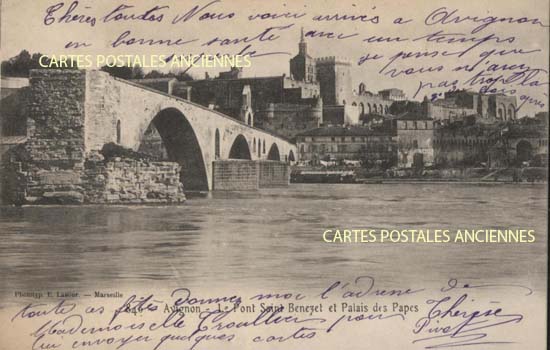 Chères toutes Nous voici arrivés a Avignon
en bonne santé avec un temps
je pense que
vous n'avez
pas trop
CARTES POSTALES ANCIENNES
CARTES POSTALES ANCIENNES
Phototyp. E. Lacour. — Marseille
846 - Avignon - Le Pont Saint Benezet et Palais des Papes
toute as été Donnez moi l'adresse de
Mademoiselle pour Thérèse
lui envoyer quelques cartes